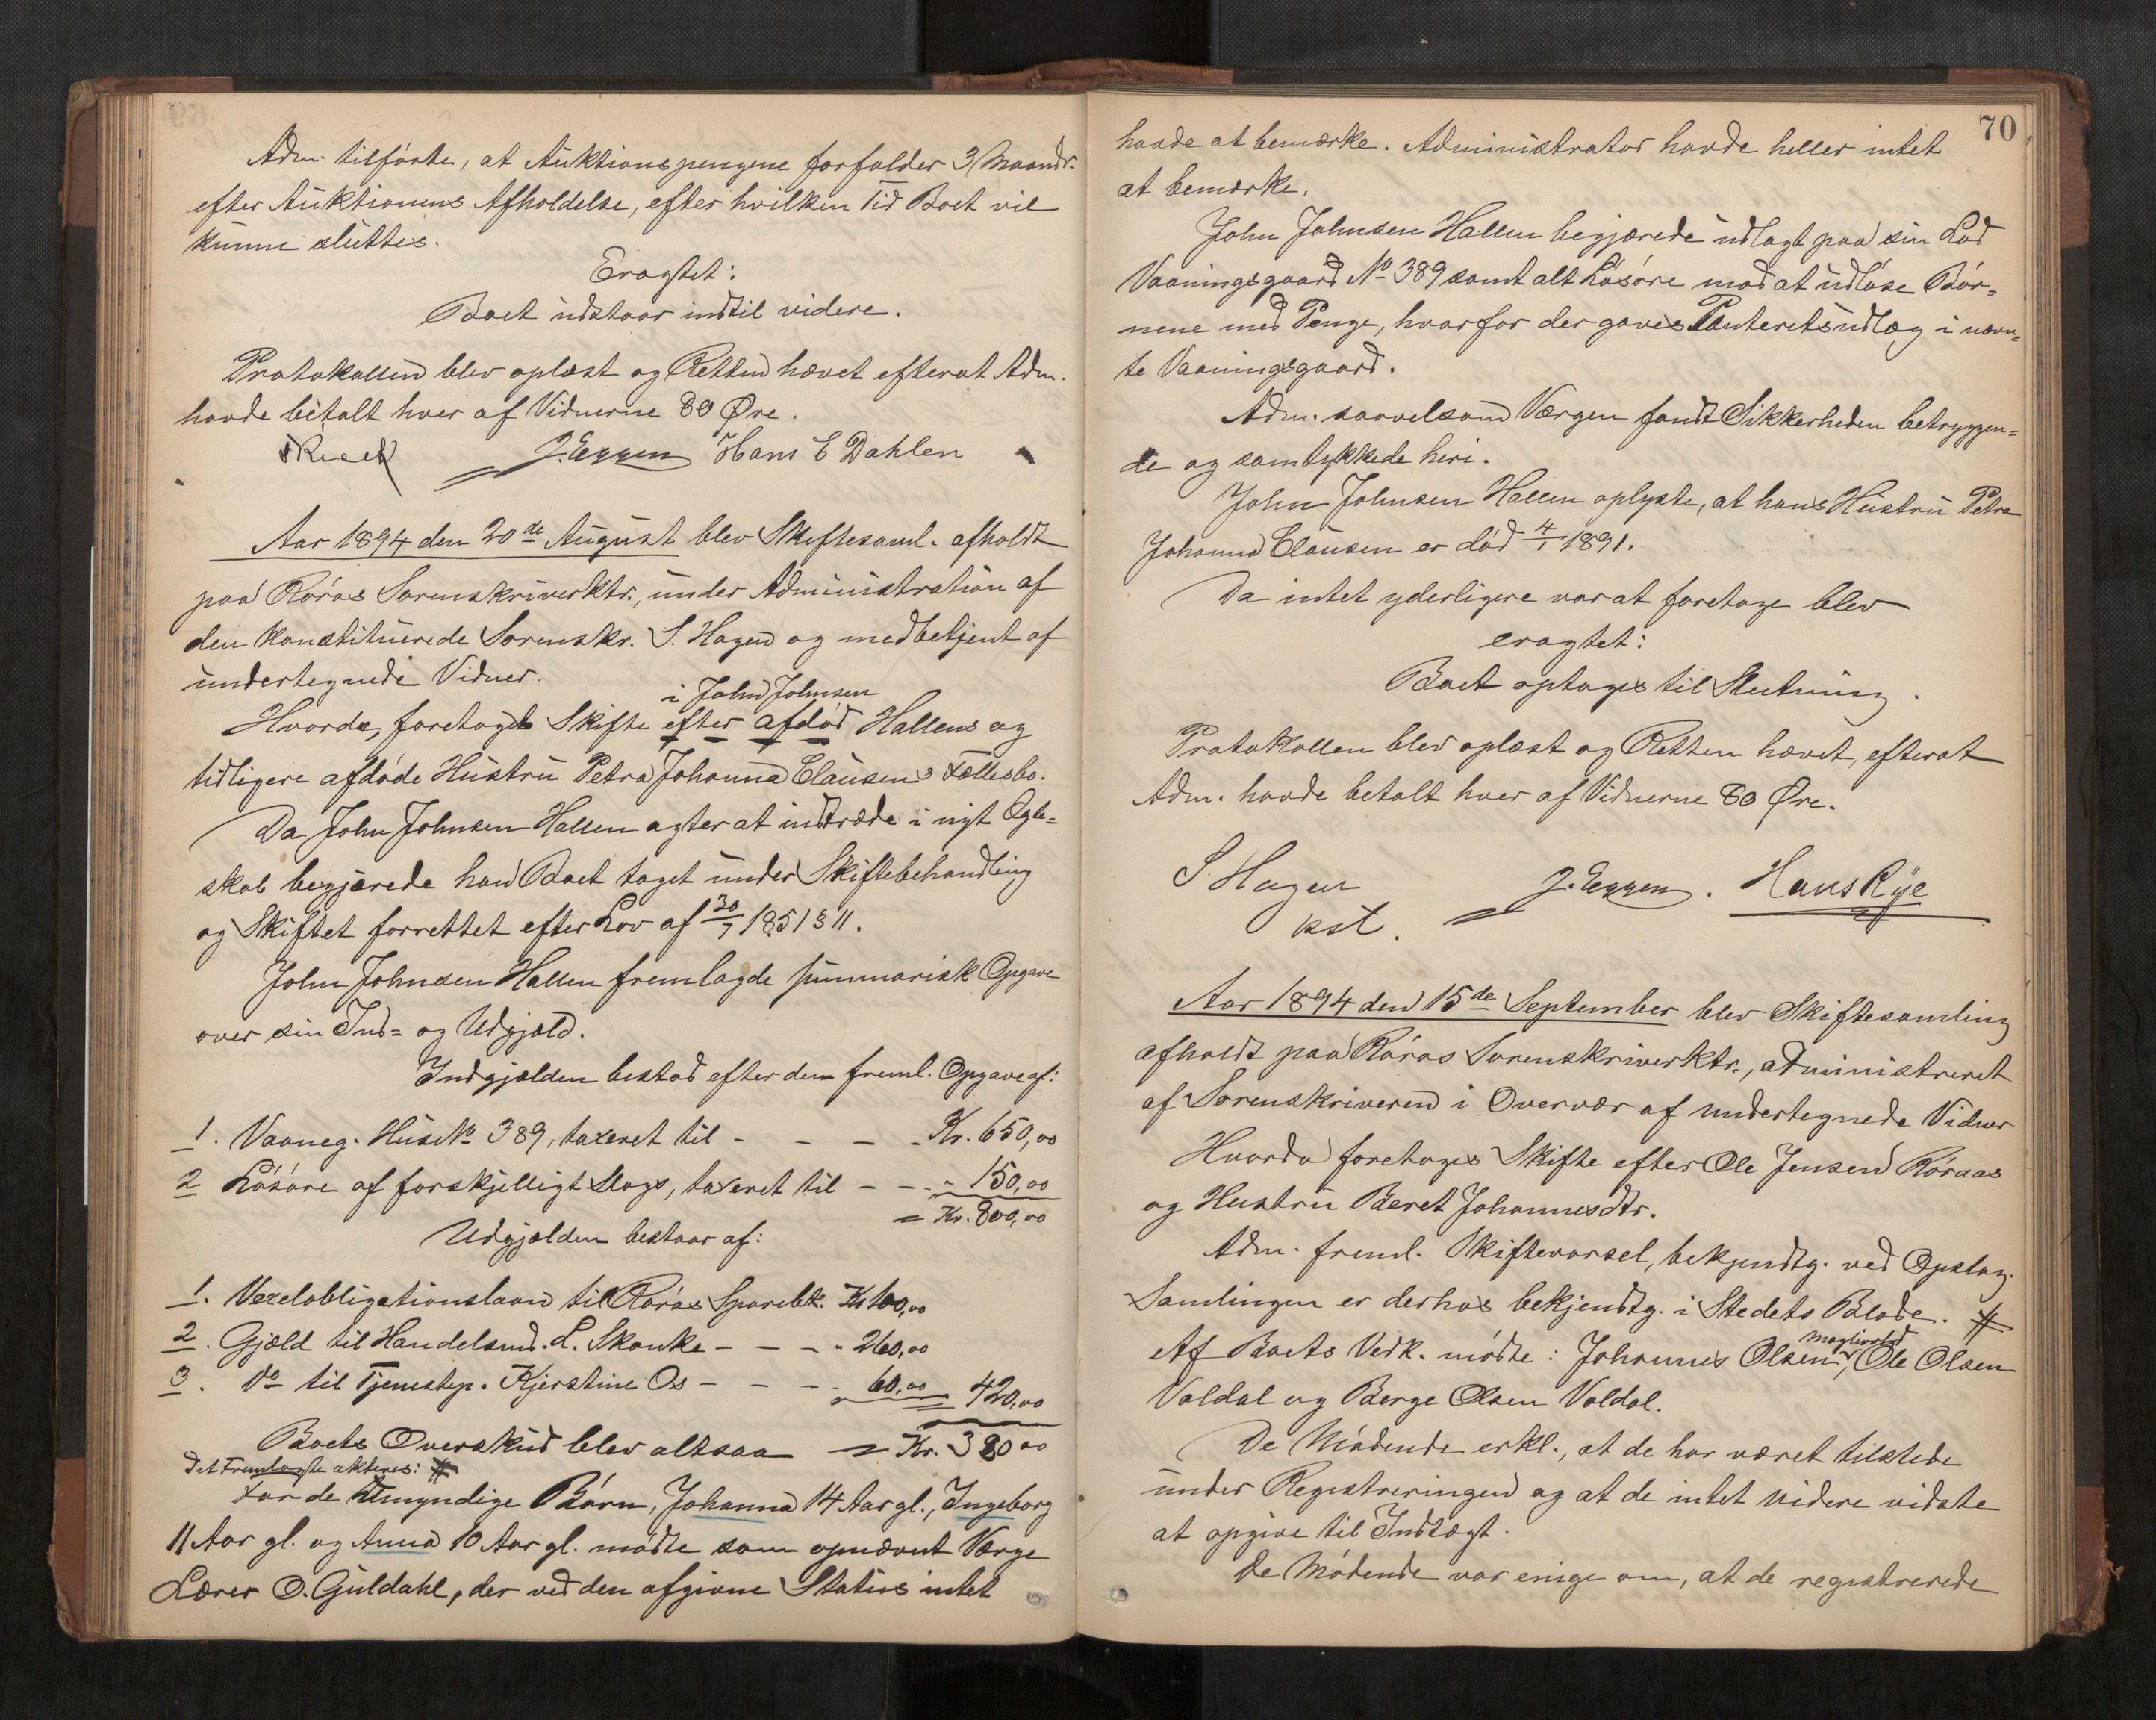 Adm. tilførte, at Auktionspengene forfalder 3 Maandr.
efter Auktionens Afholdelse, efter hvilken Tid Boet vil
kunne sluttes.
Eragtet:
Boet udstaar indtil videre.
Protokollen blev oplæst og Retten hævet efterat Adm.
havde betalt hver af Vidnerne 80 Øre.
J. Eggen Hans E Dahlen
Aar 1894 den 20de August blev Skiftesaml. afholdt
paa Røros Sorenskriverktr., under Administration af
den konstituerede Sorenskr. S. Hagen og medbetjent af
undertegnede Vidner.
i John Johnsen
Hvorda, foretoges Skifte efter afdød Hallens og
tidligere afdøde Hustru Petra Johanna Clausens Fællesbo.
Da John Johnsen Hallen agter at indtræde i nyt Ægte=
skab begjærede han Boet taget under Skiftebehandling
og Skiftet forrettet efter Lov af 30/7 1851 § 11.
John Johnsen Hallen fremlagde summarisk Opgave
over sin Ind= og Udgjæld.
Indgjælden bestod efter den freml. Opgave af:
1. Vaaneg. Hus No 389, taxeret til - - - - Kr. 650,00
2 Løsøre af forskjelligt Slags, taxeret til - - - " 150,00
= Kr. 800,00
Udgjælden bestaar af:
1. Vexelobligationslaan til Røros Sparebk. Kr 100,00
2. Gjæld til Handelsmd. L. Skanke - - - " 260,00
3. do til Tjenestep. Kjerstine Os - - - " 60,00 = 420,00
Boets Overskud blev altsaa = Kr. 380 00
Det Fremlagte akteres: #
For de Umyndige Børn, Johanna 14 Aar gl., Ingeborg
11 Aar gl. og Anna 10 Aar gl. mødte som opnævnt Værge
Lærer O. Guldahl, der ved den afgivne Status intet
70
havde at bemærke. Administrator havde heller intet
at bemærke.
John Johnsen Hallen begjærede udlagt paa sin Lod
Vaaningsgaard No 389 samt alt Løsøre mod at udløse Bør=
nene med Penge, hvorfor der gaves Panteretsudlæg i nævn=
te Vaaningsgaard.
Adm. saavelsom Værgen fandt Sikkerheden betryggen=
de og samtykkede heri.
John Johnsen Hallen oplyste, at hans Hustru Petra
Johanna Clausen er død 4/1 1891.
Da intet yderligere var at foretage blev
eragtet:
Boet optages til Slutning.
Protokollen blev oplæst og Retten hævet, efterat
Adm. havde betalt hver af Vidnerne 80 Øre.
S. Hagen J. Eggen. Hans Rye
kst.
Aar 1894 den 15de September blev Skiftesamling
afholdt paa Røros Sorenskriverktr., administreret
af Sorenskriveren i Overvær af undertegnede Vidner
Hvorda foretoges Skifte efter Ole Jensen Røraas
og Hustru Beret Johannesdtr.
Adm. freml. Skiftevarsel, bekjendtg. ved Opslag.
Samlingen er derhos bekjendtg. i Stedets Blade. #
Af Boets Vedk. mødte: Johannes Olsen, Ole Olsen
Voldal og Berge Olsen Voldal.
De Mødende erkl., at de har været tilstede
under Registreringen og at de intet videre vidste
at opgive til Indtægt.
De Mødende var enige om, at de registrerede